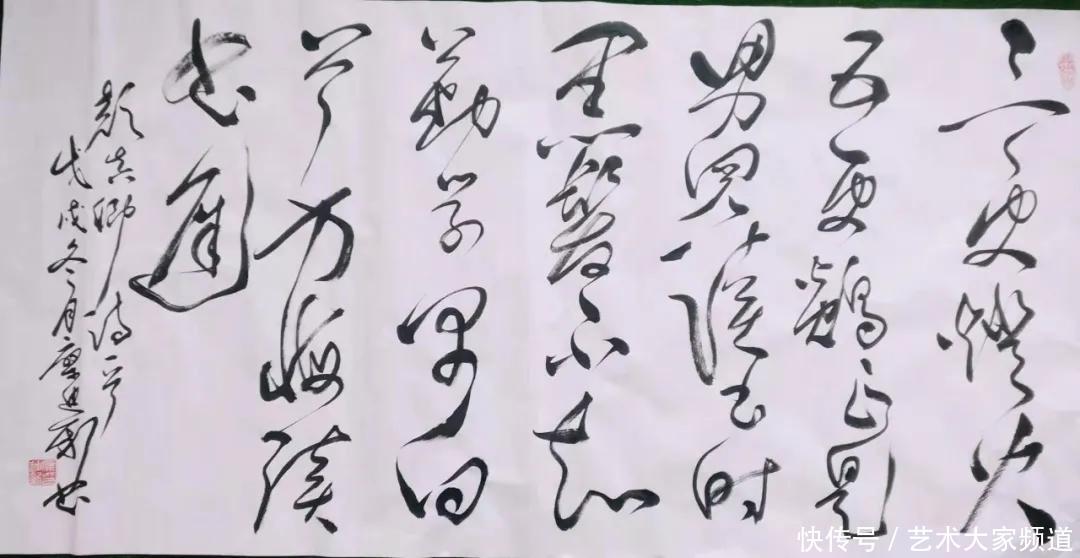 三更燈火
五更鷄正是
男兒讀书时
黑髮不知
勤学早白
首方悔讀
书遲
颜真卿诗首
戊戌冬月书
快传号/艺术大家频道